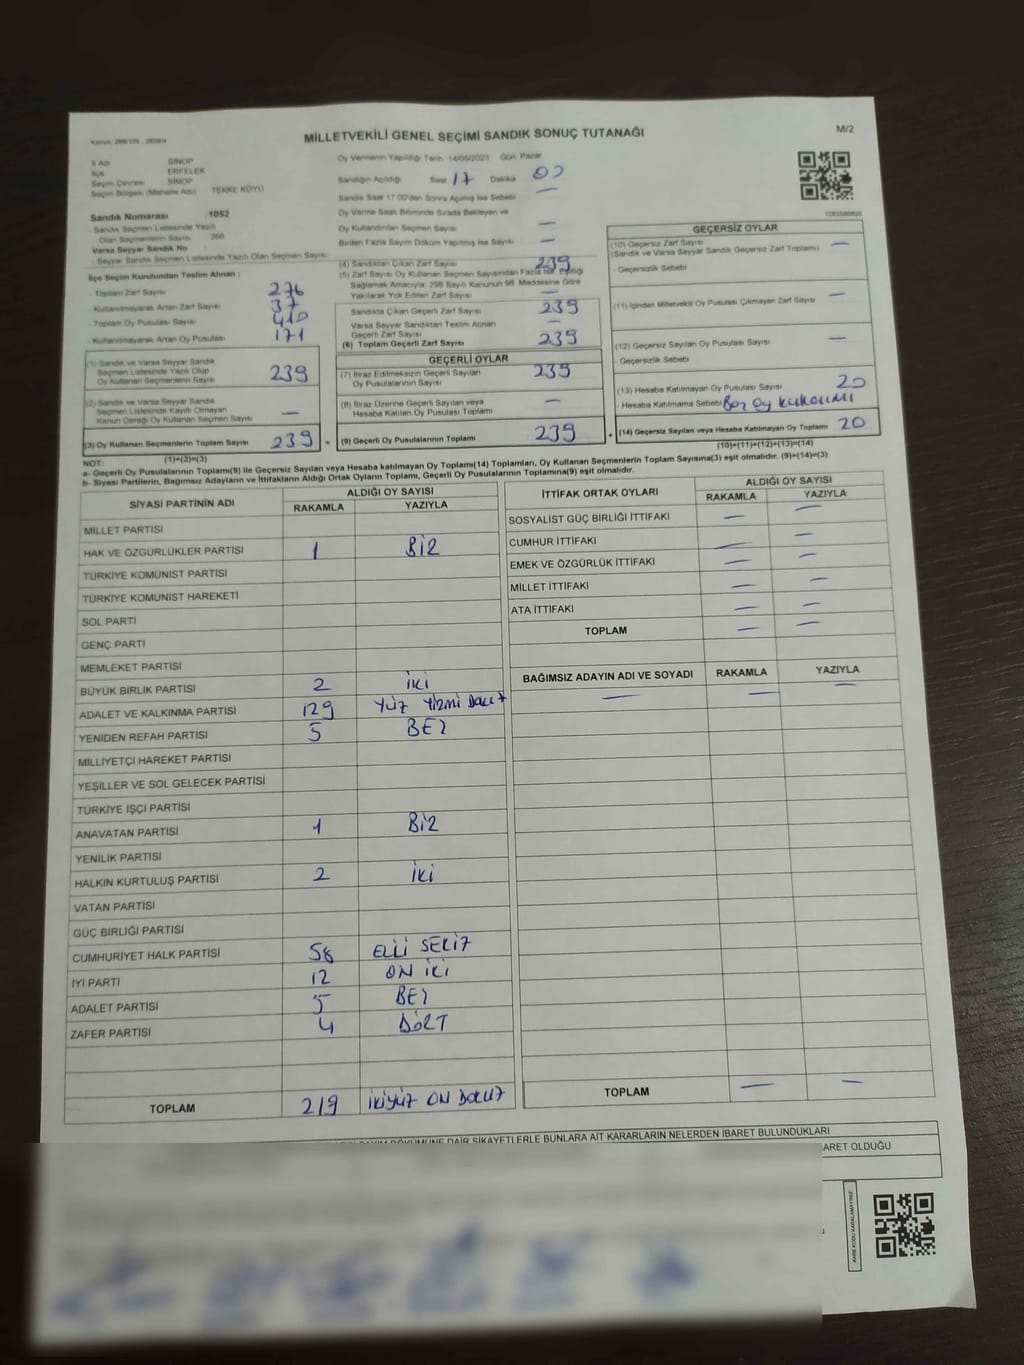 MİLLETVEKİLİ GENEL SEÇİMİ SANDIK SONUÇ TUTANAĞI
M/2
İl Adı SİNOP
İlçe ERFELEK
Seçim Çevresi SİNOP
Seçim Bölgesi (Mahalle Adı) TEKKE KÖYÜ
Sandık Numarası :1052
- Sandık Seçmen Listesinde Yazılı
Olan Seçmenlerin Sayısı 266
Varsa Seyyar Sandık No
- Seyyar Sandık Seçmen Listesinde Yazılı Olan Seçmen Sayısı
Oy Vermenin Yapıldığı Tarih: 14/05/2023 Gün: Pazar
Sandığın Açıldığı Saat 17 Dakika 00
Sandık Saat 17:00'den Sonra Açılmış İse Sebebi —
Oy Verme Saati Bitiminde Sırada Bekleyen ve
Oy Kullandırılan Seçmen Sayısı —
Birden Fazla Sayım Döküm Yapılmış İse Sayısı —
İlçe Seçim Kurulundan Teslim Alınan :
- Toplam Zarf Sayısı 276
- Kullanılmayarak Artan Zarf Sayısı 37
- Toplam Oy Pusulası Sayısı 410
- Kullanılmayarak Artan Oy Pusulası 171
(1) Sandık ve Varsa Seyyar Sandık
Seçmen Listesinde Yazılı Olup
Oy Kullanan Seçmenlerin Sayısı 239
(2) Sandık ve Varsa Seyyar Sandık
Seçmen Listesinde Kayıtlı Olmayan
Kanun Gereği Oy Kullanan Seçmen Sayısı —
(3) Oy Kullanan Seçmenlerin Toplam Sayısı 239
(1)+(2)=(3)
(4) Sandıktan Çıkan Zarf Sayısı 239
(5) Zarf Sayısı Oy Kullanan Seçmen Sayısından Fazla İse, Eşitliği
Sağlamak Amacıyla, 298 Sayılı Kanunun 98. Maddesine Göre
Yakılarak Yok Edilen Zarf Sayısı —
Sandıkta Çıkan Geçerli Zarf Sayısı 239
Varsa Seyyar Sandıktan Teslim Alınan
Geçerli Zarf Sayısı —
(6) Toplam Geçerli Zarf Sayısı 239
GEÇERLİ OYLAR
(7) İtiraz Edilmeksizin Geçerli Sayılan
Oy Pusulalarının Sayısı 239
(8) İtiraz Üzerine Geçerli Sayılan veya
Hesaba Katılan Oy Pusulası Toplamı —
= (9) Geçerli Oy Pusulalarının Toplamı 239
GEÇERSİZ OYLAR
(10) Geçersiz Zarf Sayısı —
(Sandık ve Varsa Seyyar Sandık Geçersiz Zarf Toplamı)
- Geçersizlik Sebebi
(11) İçinden Milletvekili Oy Pusulası Çıkmayan Zarf Sayısı —
(12) Geçersiz Sayılan Oy Pusulası Sayısı —
- Geçersizlik Sebebi
(13) Hesaba Katılmayan Oy Pusulası Sayısı 20
- Hesaba Katılmama Sebebi Boş oy kullanımı
+ (14) Geçersiz Sayılan veya Hesaba Katılmayan Oy Toplamı 20
(10)+(11)+(12)+(13)=(14)
NOT:
a- Geçerli Oy Pusulalarının Toplamı(9) ile Geçersiz Sayılan veya Hesaba katılmayan Oy Toplamı(14) Toplamları, Oy Kullanan Seçmenlerin Toplam Sayısına(3) eşit olmalıdır. (9)+(14)=(3)
b- Siyasi Partilerin, Bağımsız Adayların ve İttifakların Aldığı Ortak Oyların Toplamı, Geçerli Oy Pusulalarının Toplamına(9) eşit olmalıdır.
SİYASİ PARTİNİN ADI ALDIĞI OY SAYISI
RAKAMLA YAZIYLA
MİLLET PARTİSİ
HAK VE ÖZGÜRLÜKLER PARTİSİ 1 BİR
TÜRKİYE KOMÜNİST PARTİSİ
TÜRKİYE KOMÜNİST HAREKETİ
SOL PARTİ
GENÇ PARTİ
MEMLEKET PARTİSİ
BÜYÜK BİRLİK PARTİSİ 2 İKİ
ADALET VE KALKINMA PARTİSİ 129 YÜZ YİRMİ DOKUZ
YENİDEN REFAH PARTİSİ 5 BEŞ
MİLLİYETÇİ HAREKET PARTİSİ
YEŞİLLER VE SOL GELECEK PARTİSİ
TÜRKİYE İŞÇİ PARTİSİ
ANAVATAN PARTİSİ 1 BİR
YENİLİK PARTİSİ
HALKIN KURTULUŞ PARTİSİ 2 İKİ
VATAN PARTİSİ
GÜÇ BİRLİĞİ PARTİSİ
CUMHURİYET HALK PARTİSİ 58 ELLİ SEKİZ
İYİ PARTİ 12 ON İKİ
ADALET PARTİSİ 5 BEŞ
ZAFER PARTİSİ 4 DÖRT
TOPLAM 219 İKİYÜZ ON DOKUZ
İTTİFAK ORTAK OYLARI ALDIĞI OY SAYISI
RAKAMLA YAZIYLA
SOSYALİST GÜÇ BİRLİĞİ İTTİFAKI — —
CUMHUR İTTİFAKI — —
EMEK VE ÖZGÜRLÜK İTTİFAKI — —
MİLLET İTTİFAKI — —
ATA İTTİFAKI — —
TOPLAM — —
BAĞIMSIZ ADAYIN ADI VE SOYADI RAKAMLA YAZIYLA
— — —
TOPLAM — —
SAYIM DÖKÜMÜNE DAİR ŞİKAYETLERLE BUNLARA AİT KARARLARIN NELERDEN İBARET BULUNDUKLARI
BARET OLDUĞU
KARE KODU KARALAMAYINIZ